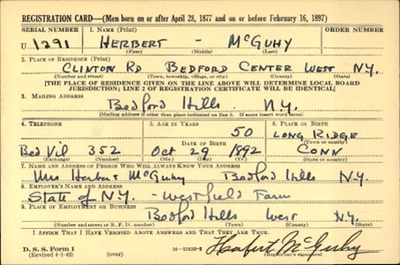 REGISTRATION CARD—(Men born on or after April 28, 1877 and on or before February 16, 1897)
SERIAL NUMBER 1. NAME (Print) ORDER NUMBER
U 1291 HERBERT - McGUHY
(First) (Middle) (Last)
2. PLACE OF RESIDENCE (Print)
CLINTON RD BEDFORD CENTER WEST N.Y.
(Number and street) (Town, township, village, or city) (County) (State)
[THE PLACE OF RESIDENCE GIVEN ON THE LINE ABOVE WILL DETERMINE LOCAL BOARD
JURISDICTION; LINE 2 OF REGISTRATION CERTIFICATE WILL BE IDENTICAL]
3. MAILING ADDRESS
Bedford Hills N.Y.
[Mailing address if other than place indicated on line 2. If same insert word same]
4. TELEPHONE 5. AGE IN YEARS 6. PLACE OF BIRTH
50 LONG RIDGE
DATE OF BIRTH (Town or county)
Bed Vil 352 Oct 29 1892 CONN
(Exchange) (Number) (Mo.) (Day) (Yr.) (State or country)
7. NAME AND ADDRESS OF PERSON WHO WILL ALWAYS KNOW YOUR ADDRESS
Mrs Herbert McGuhy Bedford Hills N.Y.
8. EMPLOYER'S NAME AND ADDRESS
State of N.Y. - Westfield Farm
9. PLACE OF EMPLOYMENT OR BUSINESS
Bedford Hills West N.Y.
(Number and street or R. F. D. number) (Town) (County) (State)
I AFFIRM THAT I HAVE VERIFIED ABOVE ANSWERS AND THAT THEY ARE TRUE.
D. S. S. Form 1
(Revised 4-1-42) (over) Herbert McGuhy
(Registrant's signature)